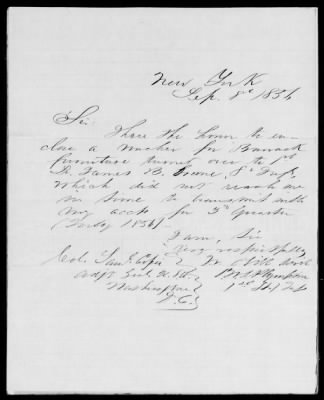 New York
Sep. 8th 1856
Sir:
I have the honor to en-
close a voucher for Barrack
furniture turned over to 1st
Lt. James B. 8th Inf.
which did not reach me
in time to transmit with
my accts for 3d Quarter
1856
I am, Sir
Very respectfully
Col. Sam'l Cooper Yr Obt Servt
Adjt Genl U.S.A.
Washington 1st
D.C.